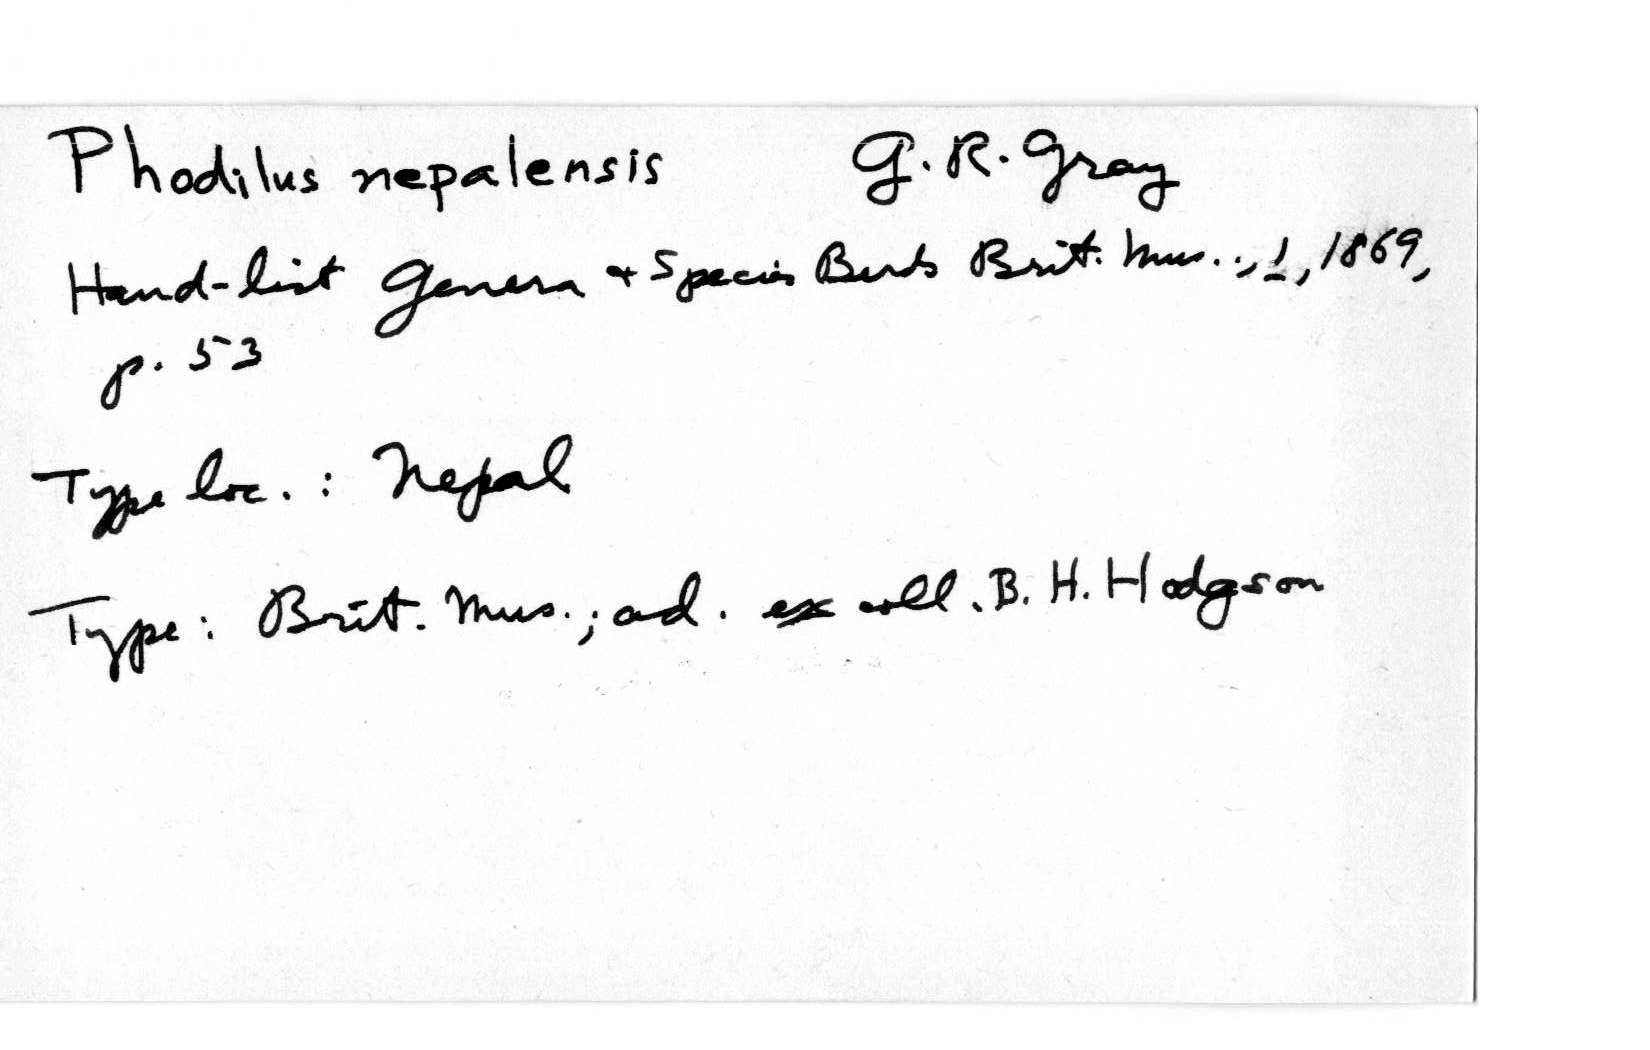 Phodilus nepalensis G. R. Gray
Hand-list Genera & Species Birds Brit. Mus., 1, 1869,
p. 53
Type loc.: Nepal
Type: Brit. Mus.; ad. ex coll. B. H. Hodgson